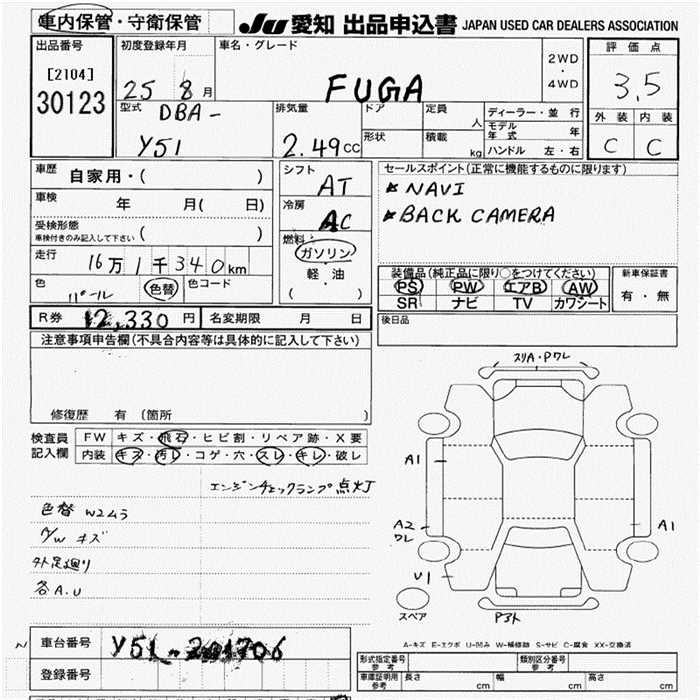 車内保管・守衛保管
JU 愛知 出品申込書 JAPAN USED CAR DEALERS ASSOCIATION
出品番号
[2104]
30123
初度登録年月
25 8月
車名・グレード
FUGA
2WD
・
4WD
評価点
3.5
外装 内装
C C
型式
DBA-
Y51
排気量
2.49cc
ドア
形状
定員
人
積載
kg
ディーラー・並行
モデル年式 年
ハンドル 左・右
車歴
自家用・( )
車検
年 月( 日)
受検形態
車検付きのみ記入して下さい ( )
走行
16万1千340km
色
パール
色替
色コード
シフト
AT
冷房
AC
燃料
ガソリン
・
軽・油
( )
セールスポイント(正常に機能するものに限ります)
NAVI
BACK CAMERA
装備品(純正品に限り○をつけてください)
PS PW エアB AW
SR ナビ TV カワシート
新車保証書
有・無
R券 12,330円
名変期限 月 日
後日品
注意事項申告欄(不具合内容等は具体的に記入して下さい)
修復歴 有(箇所 )
検査員
記入欄
FW キズ・飛石・ヒビ割・リペア跡・X要
内装 キズ・汚レ・コゲ・穴・スレ・キレ・破レ
エンジンチェックランプ点灯
色替 W2ムラ
A/W キズ
外足廻り
各A.U
スリA・Pワレ
A1
A2
ワレ
U1
A1
スペア
Pスト
A-キズ E-エクボ U-凹み W-補修跡 S-サビ C-腐食 XX-交換済
N
車台番号
Y51-201706
登録番号
形式指定番号
参考
類別区分番号
参考
車庫証明用
参考
長さ cm
幅 cm
高さ cm